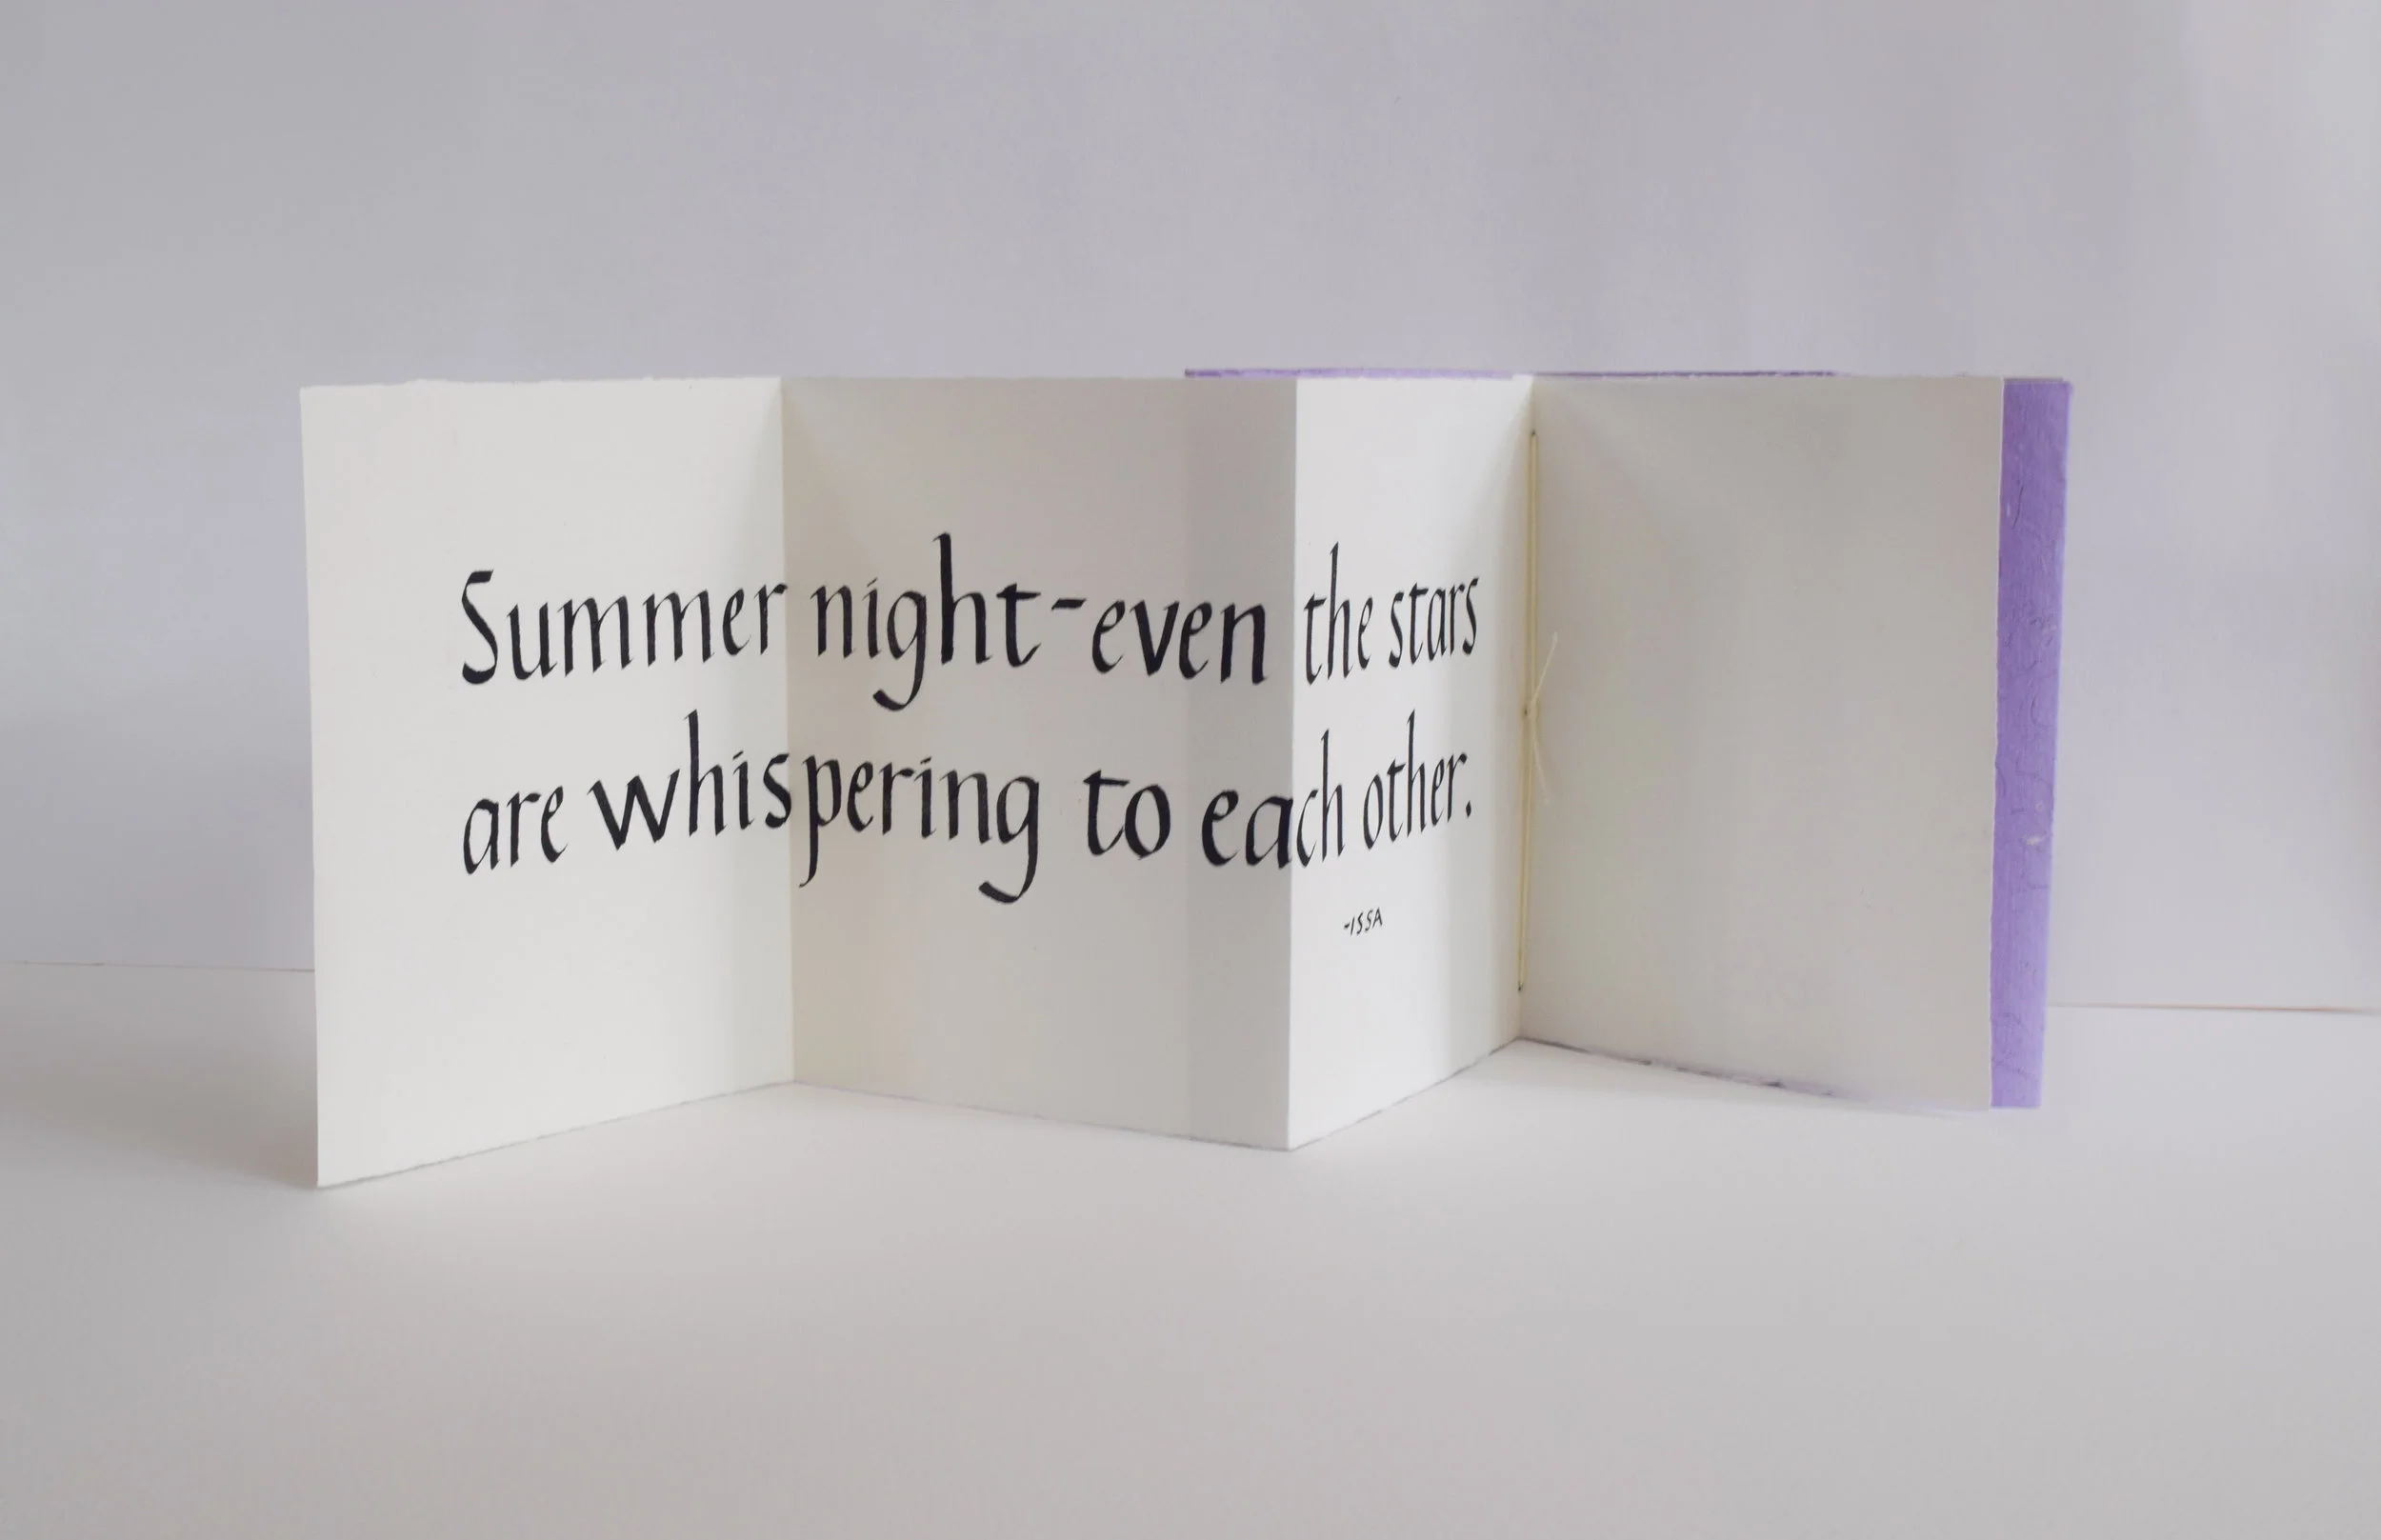 Summer night-even the stars
are whispering to each other.
-ISSA